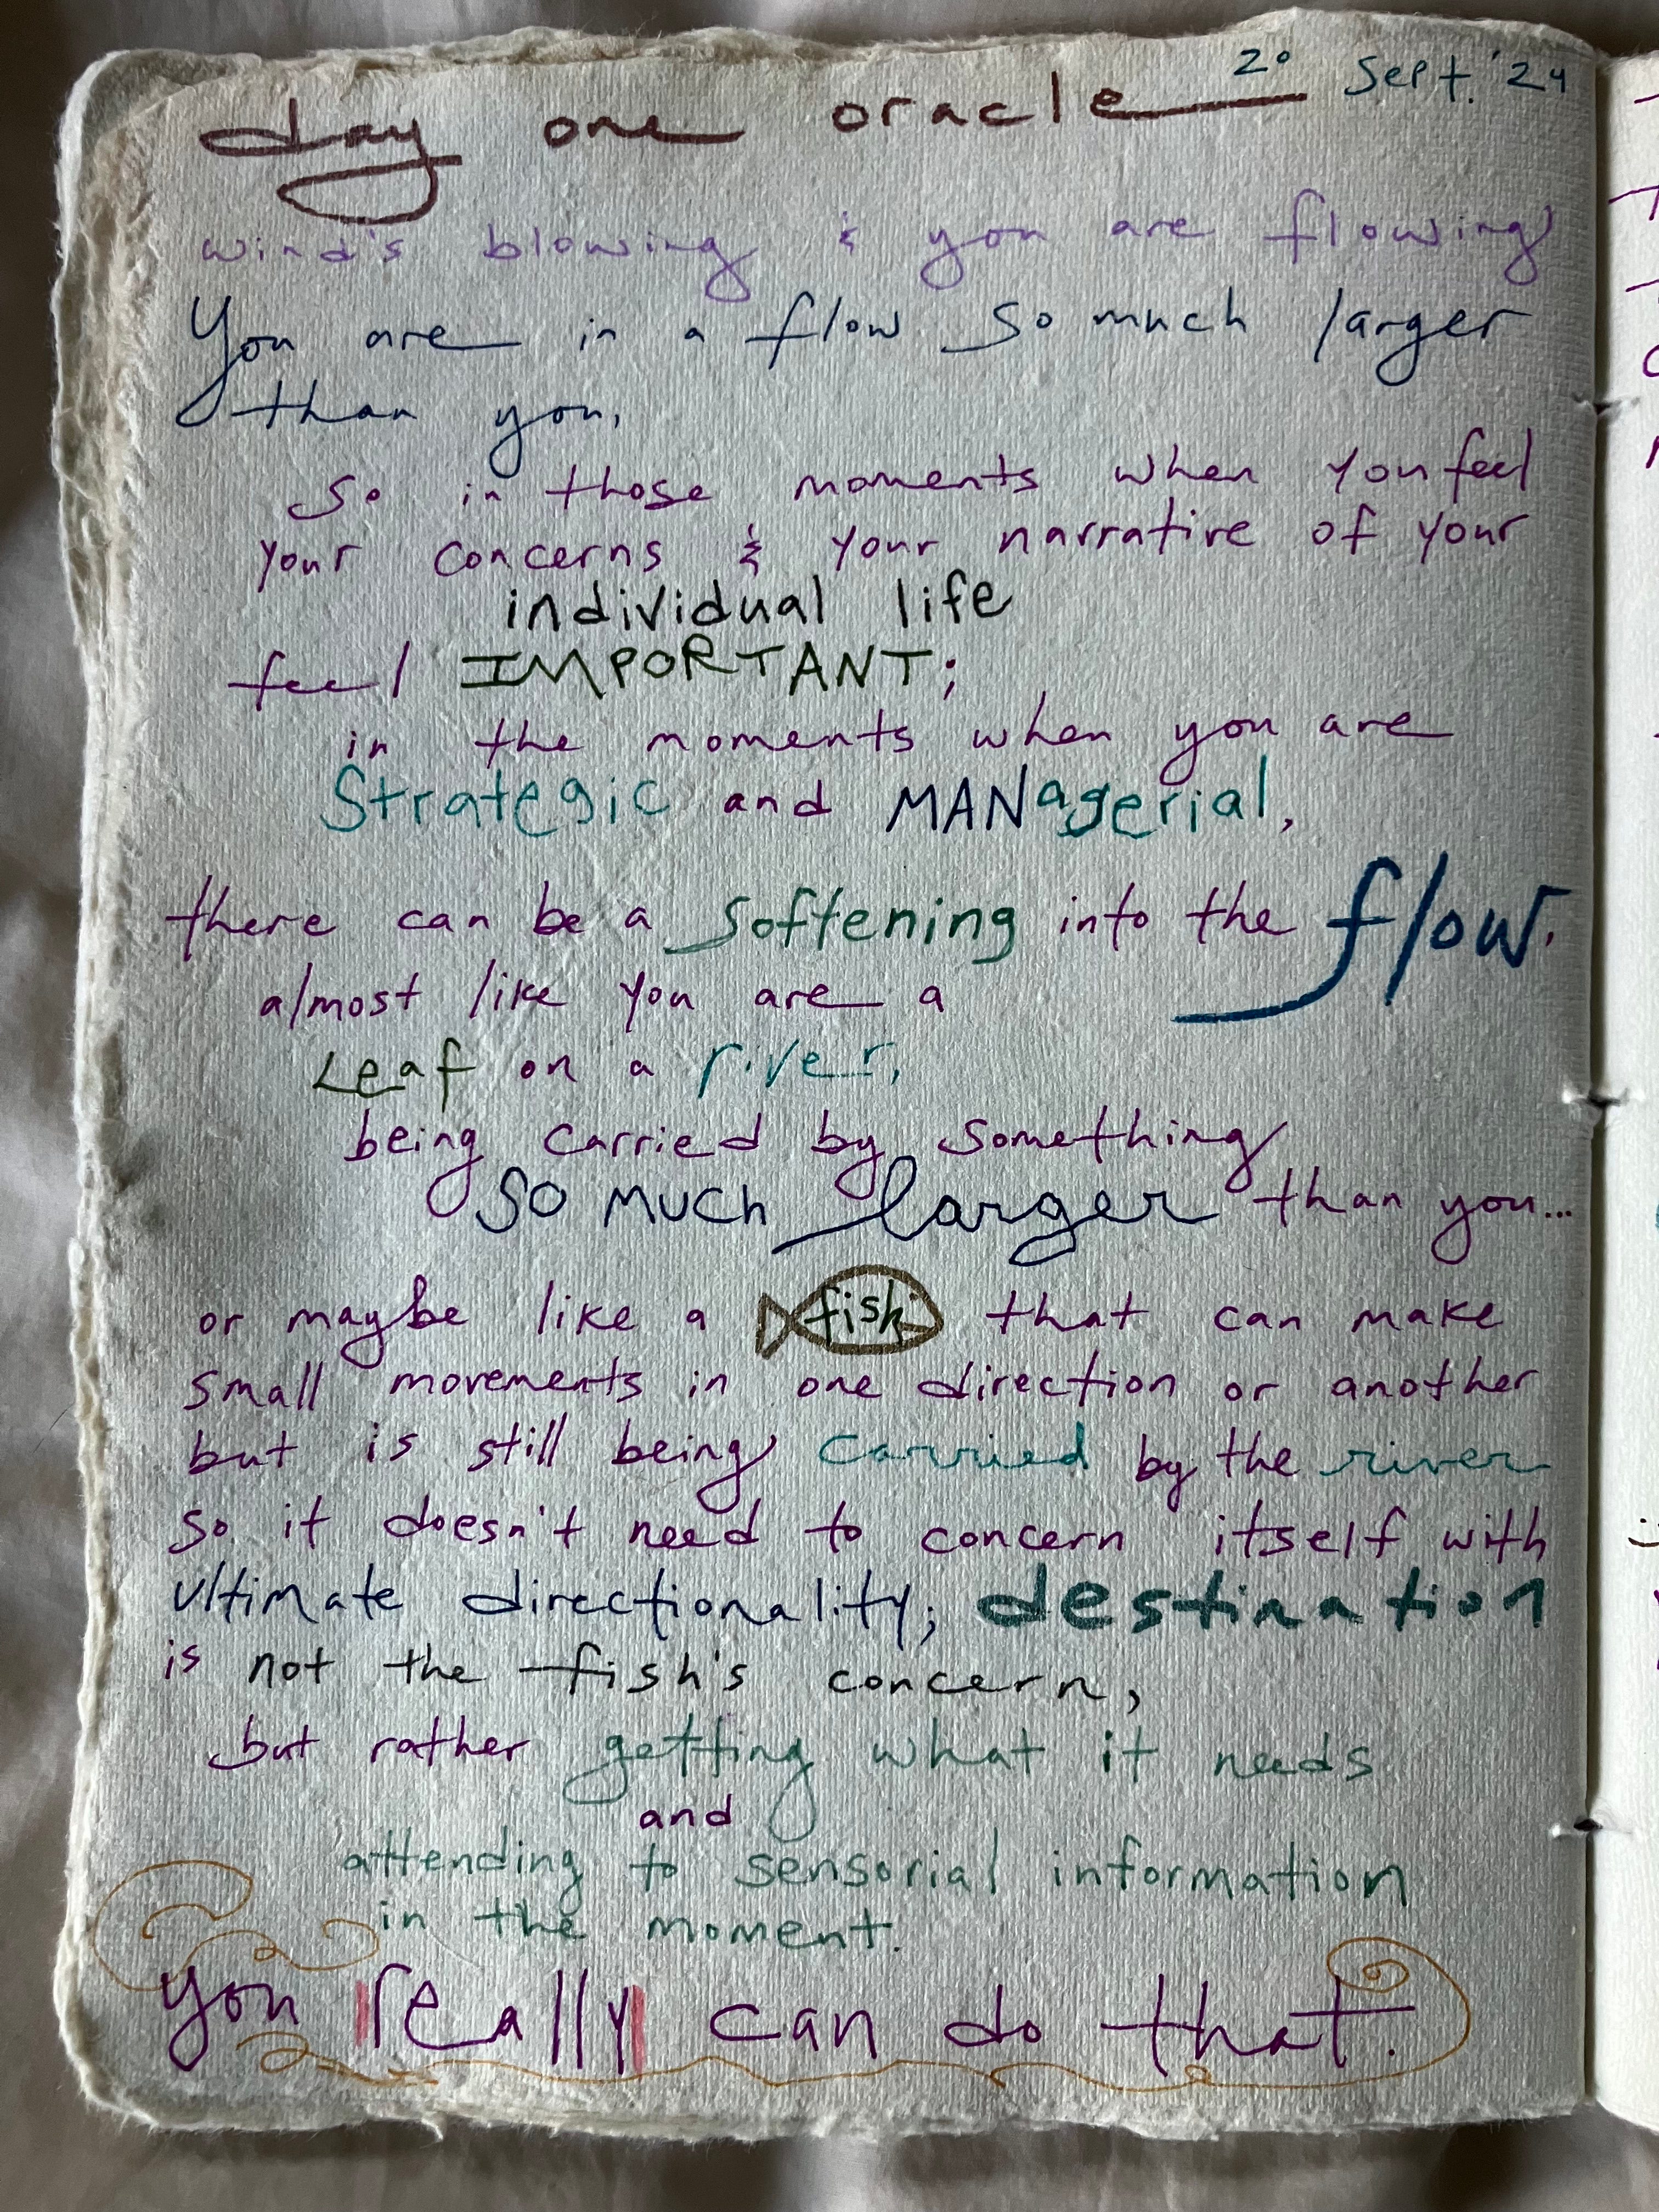 day one oracle 20 Sept. '24
wind's blowing & you are flowing
You are in a flow so much larger
than you,
so in those moments when you feel
your concerns & your narrative of your
individual life
feel IMPORTANT;
in the moments when you are
Strategic and MANagerial,
there can be a softening into the flow.
almost like you are a
Leaf on a river,
being carried by something
SO MUCH larger than you...
or maybe like a fish that can make
small movements in one direction or another
but is still being carried by the river
so it doesn't need to concern itself with
ultimate directionality; destination
is not the fish's concern,
but rather getting what it needs
and
attending to sensorial information
in the moment.
you really can do that.